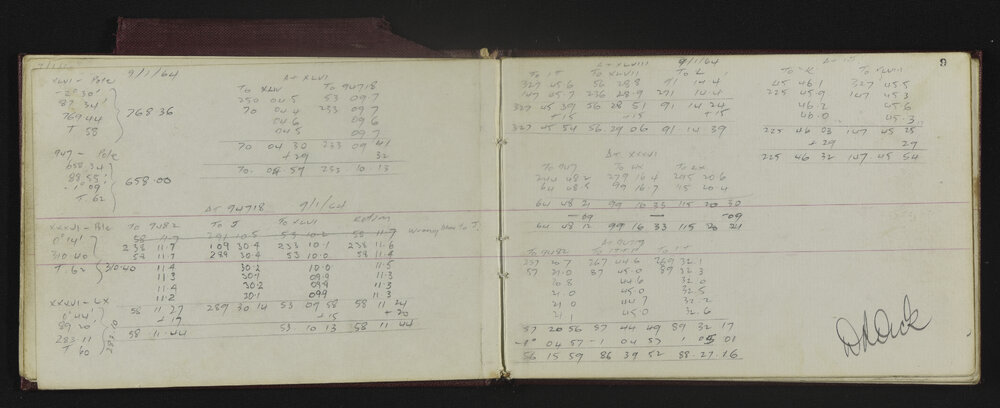 9/1/64
XLVI - Pole
-2° 30'
87 34'
769.44
T 58
768.36
947 - Pole
658.34
88.55'
1° 09'
T. 62
658.00
At XLVI
To XLIV To 94718
250 04.5 53 09.7
70 04.4 233 09.7
04.6 09.6
04.5 09.7
70 04 30 233 09 41
+ 29 32
70. 04. 59 233 10.13
At 94718 9/1/64
To 9482 To J To XLVI
58 11.7 291 10.5 53 10.2 58 11.7 Wrong
238 11.7 109 30.4 233 10.1 238 11.6
58 11.7 289 30.4 53 10.0 58 11.4
11.4 30.2 10.0 11.5
11.3 30.1 09.9 11.3
11.4 30.2 09.8 11.3
11.2 30.1 09.9 11.3
58 11 27 289 30 14 53 09 58 58 11 24
+ 17 + 15 + 20
58 11 44 53 10 13 58 11 44
XXXVI - Pole
0° 14'
310.40
T 62
310.40
XXXVI - LX
0° 44'
89 20'
283.11
T 60
9
At XLVIII 9/1/64
To JT To XLVII To L
327 45.6 56 28.8 91 14.4
147 45.7 236 28.9 271 14.4
327 45 39 56 28 51 91 14 24
+ 15 + 15 + 15
327 45 54 56. 29 06 91 14 39
To K To XLVII
225 46.1 327 45.5
225 45.9 147 45.3
46.2 45.6
46.0 45.3
225 46 03 147 45 25
+ 29 29
225 46 32 147 45 54
At XXXVI
To 947 To LX
244 48.2 279 16.4 295 20.6
64 48.5 99 16.7 115 20.4
64 48 21 99 16 33 115 20 30
- 09 — - 09
64 48 12 99 16 33 115 20 21
At 9479
To 9482
237 20.7 267 44.6 269 32.1
57 21.0 87 45.0 89 32.3
20.8 44.6 32.0
21.0 45.0 32.5
21.0 44.7 32.2
21.1 45.0 32.6
57 20 56 87 44 49 89 32 17
-1° 04 57 -1 04 57 1 05 01
56 15 59 86 39 52 88. 27. 16